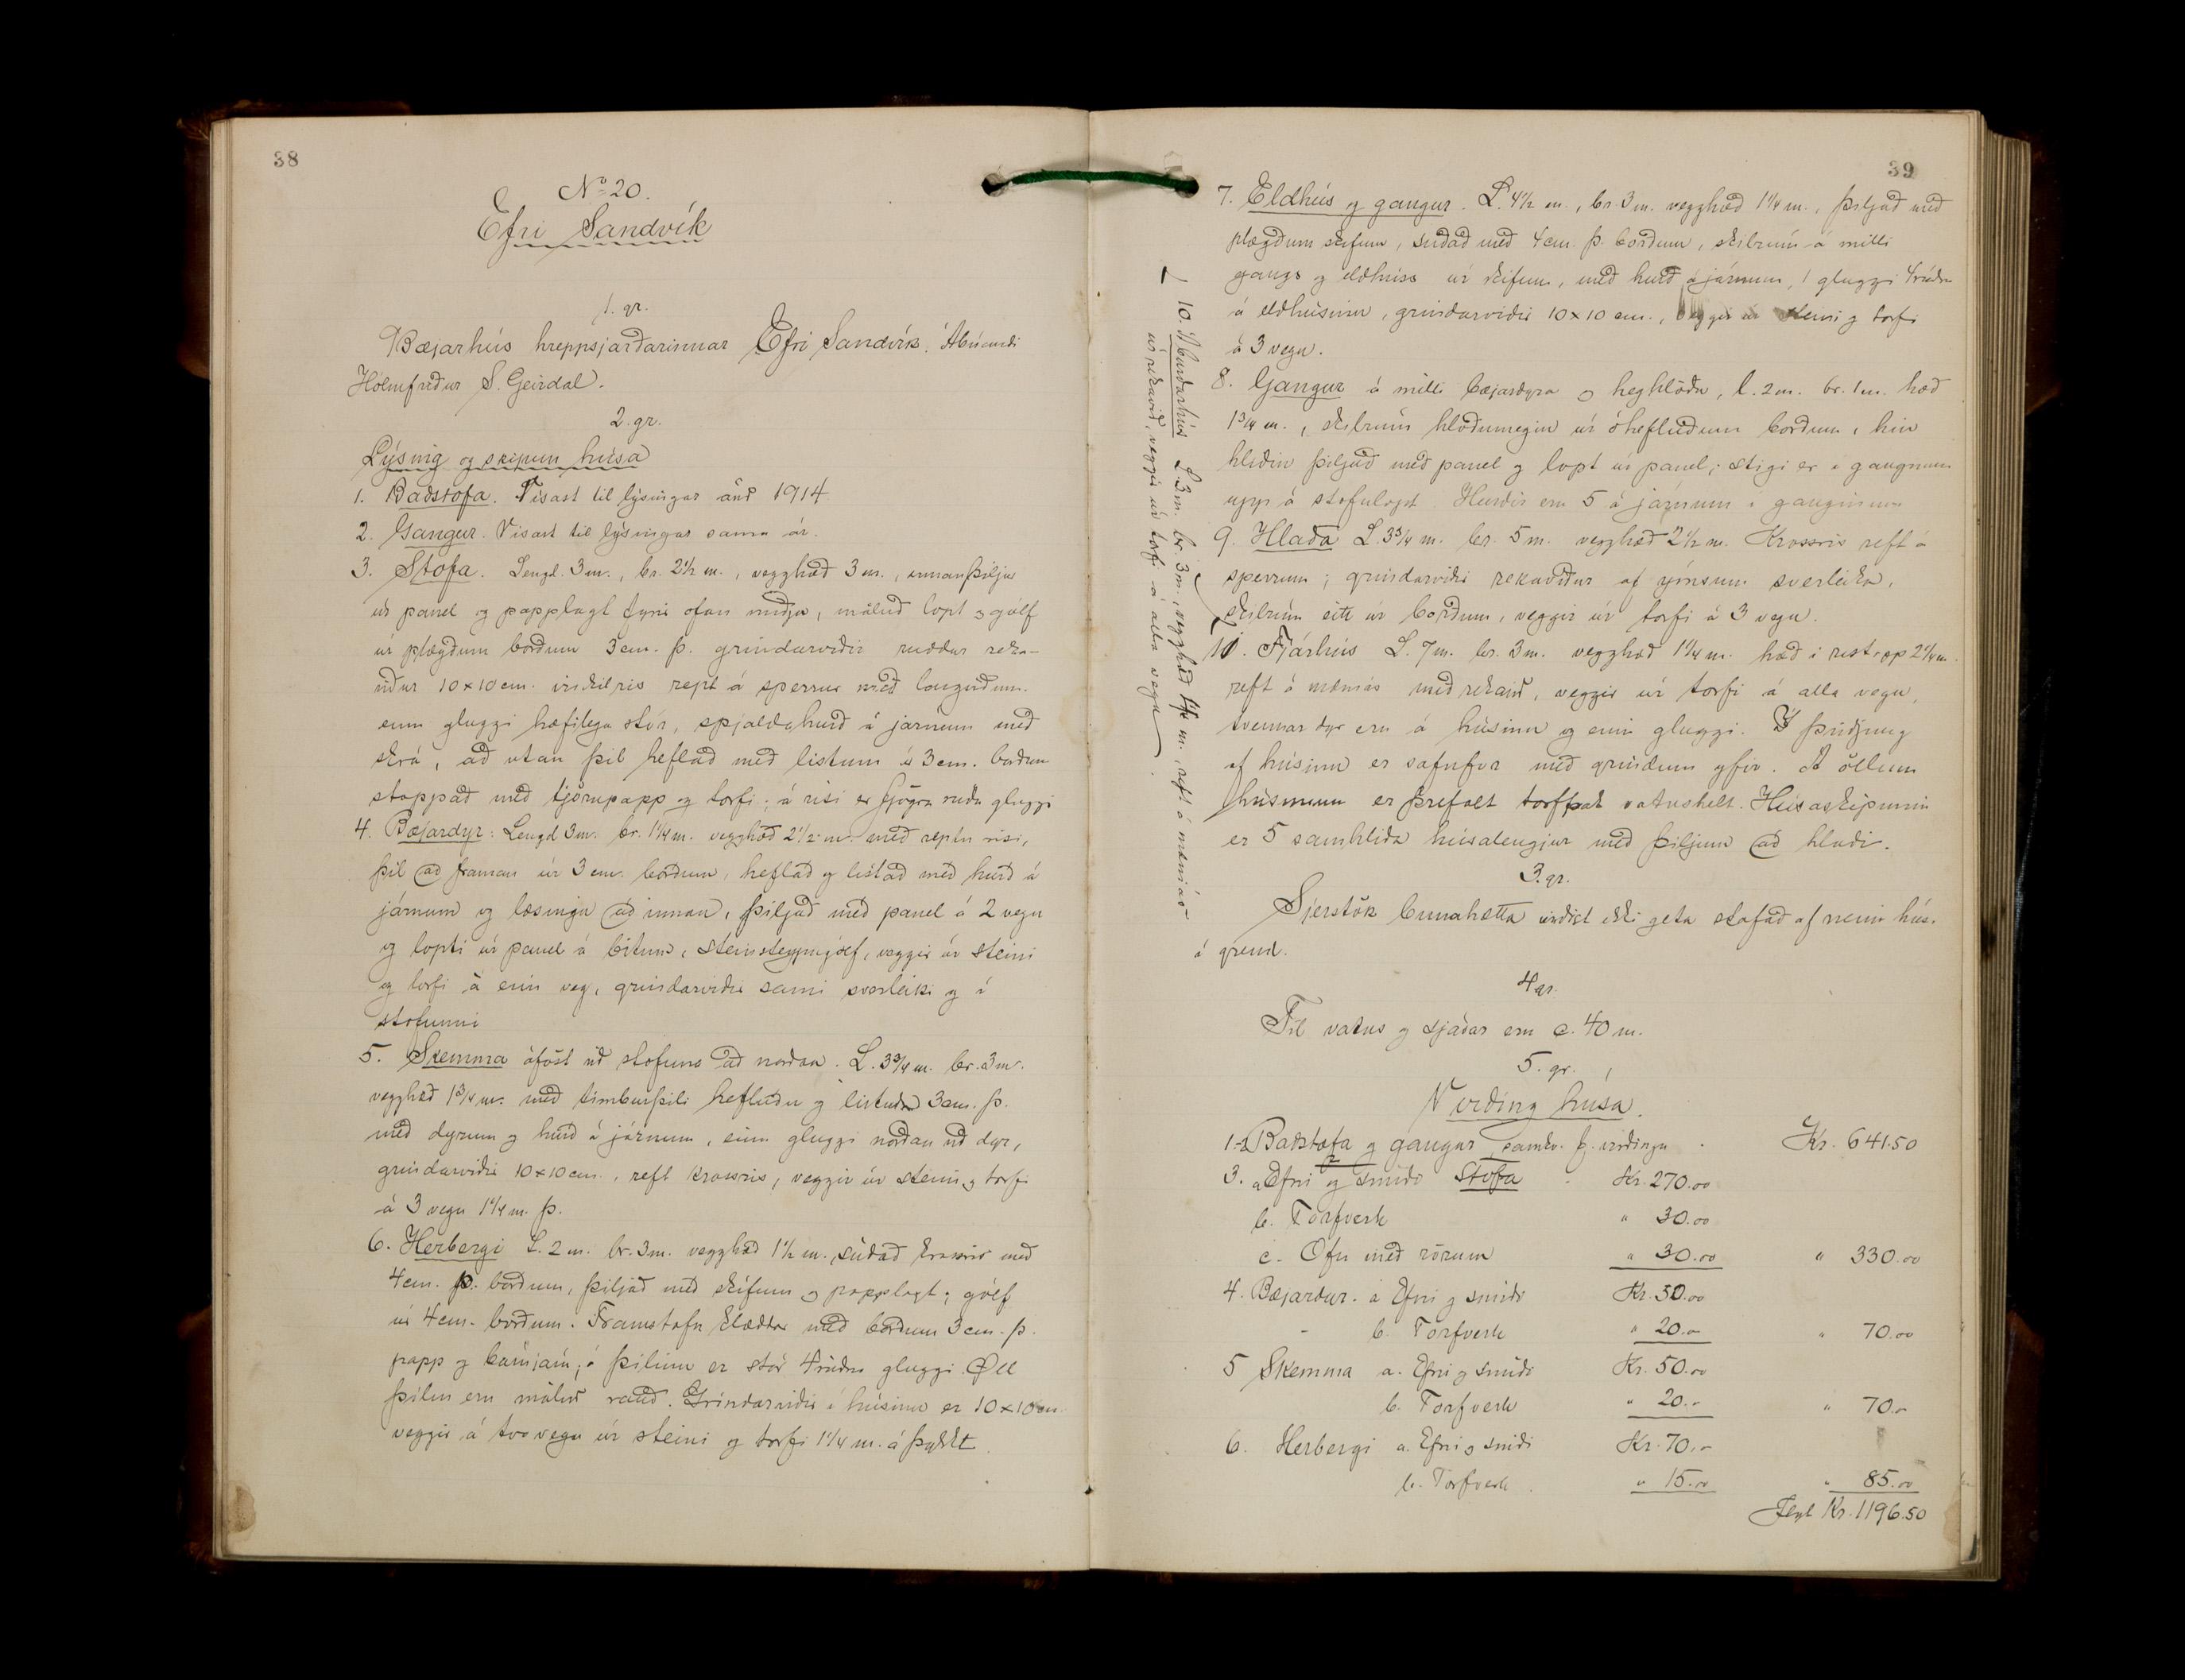 38
No 20.
Efri Sandvík
1. gr.
Bæjarhús hreppsjarðarinnar Efri Sandvík. Ábúandi
Hólmfríður S. Geirdal.
2. gr.
Lýsing og skipun húsa
1. Baðstofa. Vísast til lýsingar árið 1914
2. Gangur. Vísast til lýsingar sama ár.
3. Stofa. Lengd. 3 m., br. 2 1/2 m., vegghæð 3 m., innanþiljuð
úr panel og papplagt fyrir ofan miðju, máluð lopt og gólf
úr plægðum borðum 3 cm. þ. grindarviðir ruddur reka-
viður 10x10 cm. rept á sperrur með langböndum.
einn gluggi hæfilega stór, spjaldahurð á járnum með
skrá, að utan þil heflað með listum úr 3 cm. borðum
stoppað með tjörupapp og torfi; á risi er fjögra rúðu gluggi
4. Bæjardyr: Lengd 3 m. br. 1 1/4 m. vegghæð 2 1/2 m. með reptu risi,
þil að framan úr 3 cm. borðum, heflað og listað með hurð á
járnum og læsingu að innan, þiljað með panel á 2 vegu
og lopti úr panel á bitum, steinsteypugólf, veggir úr steini
og torfi á einn veg, grindarviðir sami sverleiki og í
stofunni
5. Skemma áföst við stofuna að norðan. L. 3 3/4 m. br. 3 m.
vegghæð 1 3/4 m. með timburþili hefluðu og listuðu 3 cm. þ.
með dyrum og hurð á járnum, einn gluggi norðan við dyr,
grindarviðir 10x10 cm., reft krossris, veggir úr steini og torfi
á 3 vegu 1 1/4 m. þ.
6. Herbergi L. 2 m. br. 3 m. vegghæð 1 1/2 m. súðað krossris með
4 cm. þ. borðum, þiljað með skífum og papplagt; gólf
úr 4 cm. borðum. Framstafn klæddur með borðum 3 cm. þ.
papp og bárujárn; á þilinu er stór 4 rúðu gluggi. Öll
þilin eru máluð rauð. Grindarviðir í húsinu er 10x10 cm.
veggir á tvo vegu úr steini og torfi 1 1/4 m. á þykkt.
39
7. Eldhús og gangur. L. 4 1/2 m., br. 3 m. vegghæð 1 1/4 m., þiljað með
plægðum skífum, súðað með 4 cm. þ. borðum, skilrúm á milli
gangs og eldhúss úr skífum, með hurð á járnum, 1 gluggi 4 rúðu
á eldhúsinu, grindarviðir 10x10 cm., veggir úr steini og torfi
á 3 vegu.
8. Gangur á milli bæjardyra og heyhlöðu, l. 2 m. br. 1 m. hæð
1 3/4 m., skilrúm hlöðumegin úr óhefluðum borðum, hin
hliðin þiljuð með panel og lopt úr panel; stigi er í gangnum
upp á stofulopt. Hurðir eru 5 á járnum í ganginum
9. Hlaða L. 3 3/4 m. br. 5 m. vegghæð 2 1/2 m. Krossris reft á
sperrum; grindarviðir rekaviður af ýmsum sverleika,
skilrúm eitt úr borðum, veggir úr torfi á 3 vegu.
10. Áburðarhús L. 3 m. br. 3 m., vegghæð m., reft á mæniás
úr rekavið, veggir úr torfi á alla vegu
11. Fjárhús L. 7 m. br. 3 m. vegghæð 1 1/4 m. hæð í ris 2 1/4 m.
reft á mæniás með rekavið, veggir úr torfi á alla vegu,
tvennar dyr eru á húsinu og einn gluggi. Í þriðjung
af húsinu er safnfor með grindum yfir. Á öllum
húsunum er þrefalt torfþak vatnshelt. Húsaskipunin
er 5 samhliða húsalengjur með þiljum að hlaði.
3. gr.
Sjerstök brunahætta virðist ekki geta stafað af neinu hús-
á grend.
4 gr.
Til vatns og sjáfar eru c. 40 m.
5. gr.
Virðing húsa.
1.-2 Baðstofa og gangur samkv. f. virðingu Kr. 641.50
3. a Efni og smíði Stofa Kr. 270.00
b. Torfverk " 30.00
c. Ofn með rörum " 30.00 " 330.00
4. Bæjardyr. a Efni og smíði Kr. 50.00
- b. Torfverk " 20.00 " 70.00
5 Skemma a. Efni og smíði Kr. 50.00
b. Torfverk " 20.- " 70.-
6. Herbergi a. Efni og smíði Kr. 70.-
b. Torfverk " 15.00 " 85.00
Flyt Kr. 1196.50